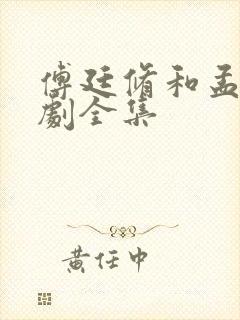 傅廷脩和孟
劇全集
黃任中